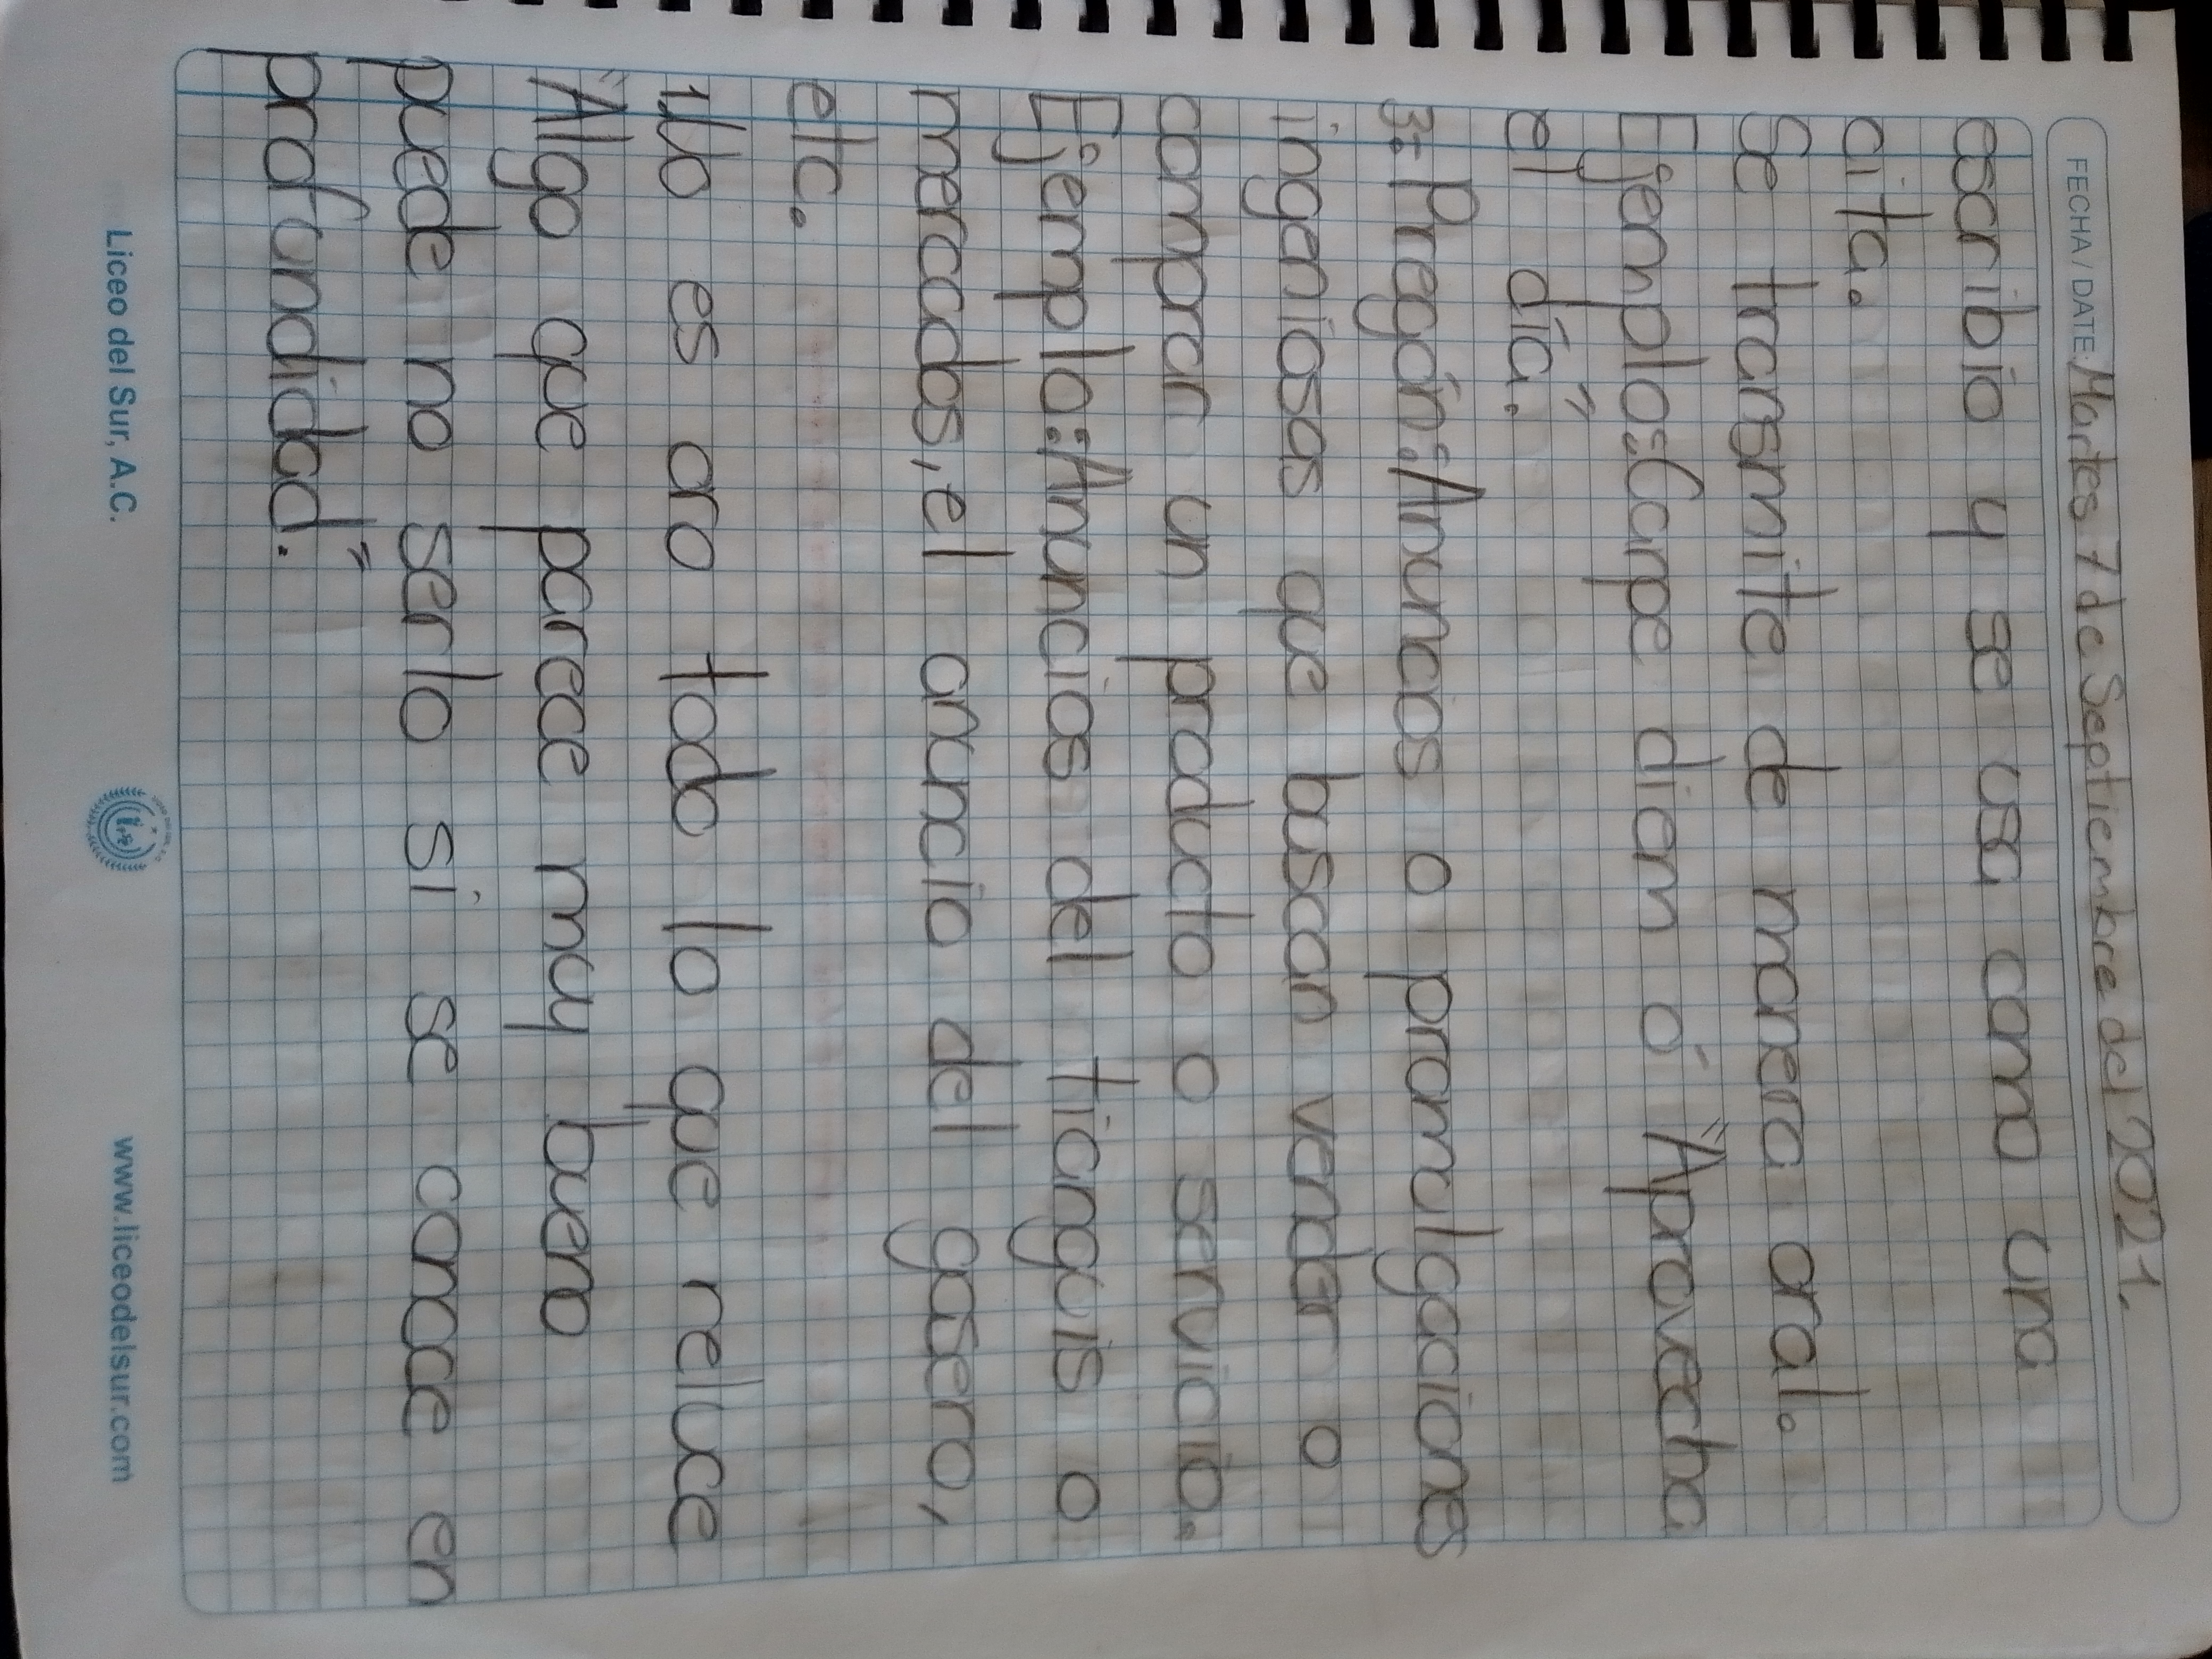 FECHA / DATE: Martes 7 de Septiembre del 2021.
escribio y se usa como una
cita.
Se transmite de manera oral.
Ejemplos: Carpe diem ó "Aprovecha
el día."
3: Pregón: Anuncios o promulgaciones
ingeniosas que buscan vender o
comprar un producto o servicio.
Ejemplo: Anuncios del tianguis o
mercados, el anuncio del gasero,
etc.
1. No es oro todo lo que reluce
"Algo que parece muy bueno
puede no serlo si se conoce en
profundidad."
Liceo del Sur, A.C.
www.liceodelsur.com